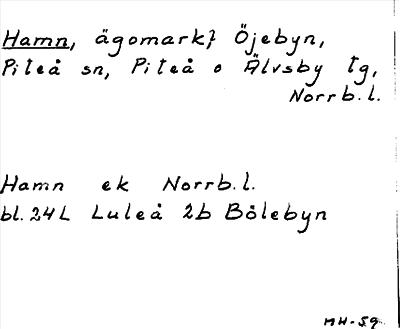 Hamn, ägomark} Öjebyn,
Piteå sn, Piteå o Älvsby tg,
Norrb. l.
Hamn ek Norrb. l.
bl. 24L Luleå 2b Bölebyn
MH-59